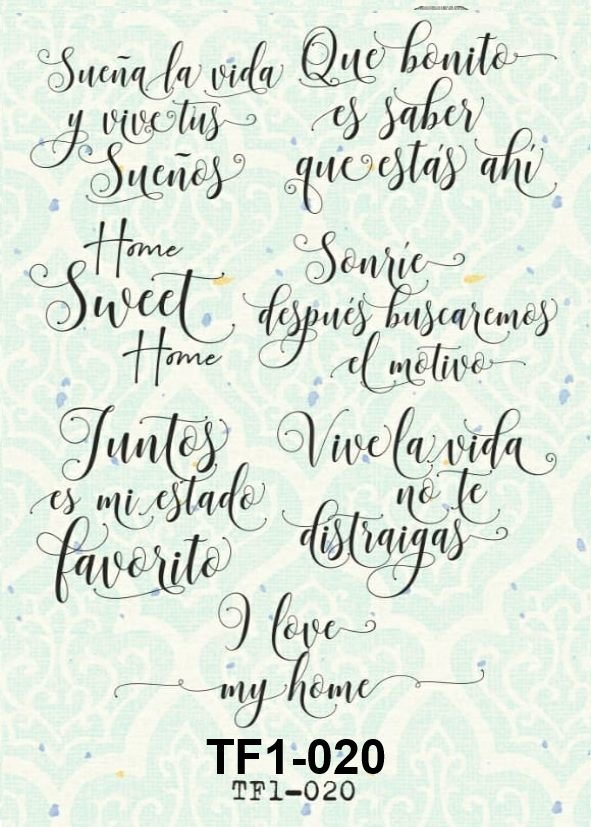 Sueña la vida
y vive tus
Sueños
Que bonito
es saber
que estás ahí
Home
Sweet
Home
Sonríe
después buscaremos
el motivo
Juntos
es mi estado
favorito
Vive la vida
no te
distraigas
I love
my home
TF1-020
TF1-020